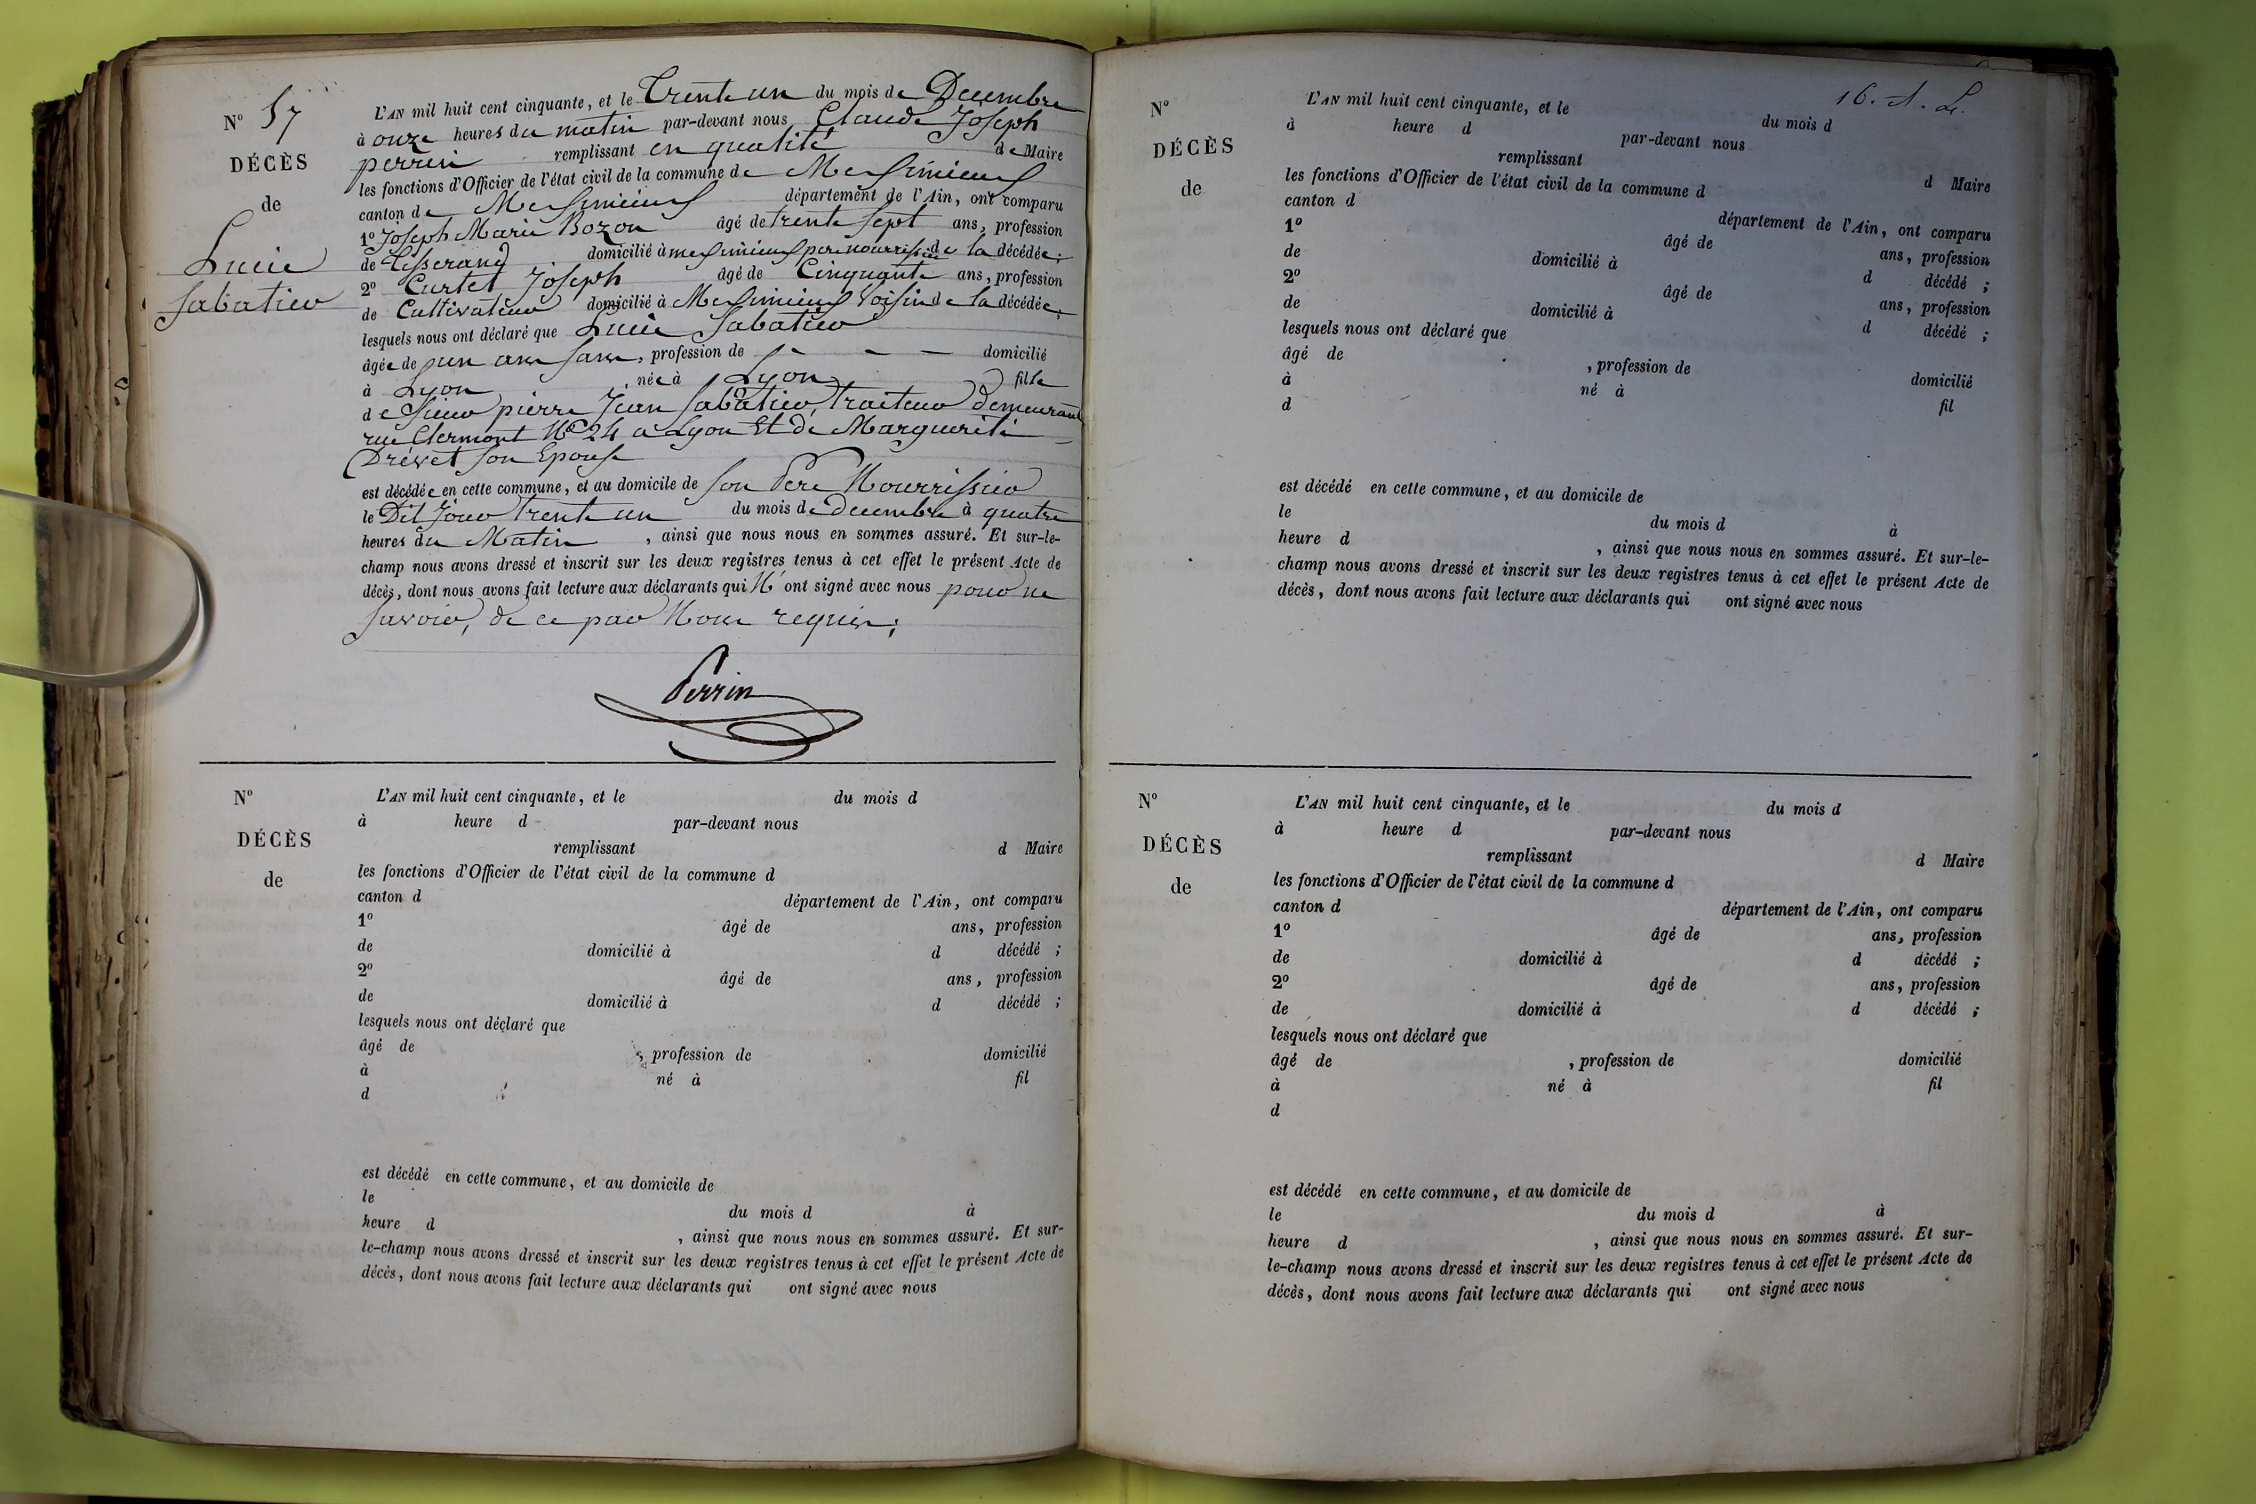 N° 57
DÉCÈS
de
Lucie
Sabatier
L'AN mil huit cent cinquante, et le Trente un du mois de Decembre
à onze heures du matin par-devant nous Claude Joseph
perrin remplissant en qualité de Maire
les fonctions d'Officier de l'état civil de la commune de Meximieux
canton de Meximieux département de l'Ain, ont comparu
1° Joseph Marie Bozon âgé de trente sept ans, profession
de Tisserand domicilié à meximieux pere nourrissier de la décédée;
2° Curtet Joseph âgé de Cinquante ans, profession
de Cultivateur domicilié à Meximieux Voisin de la décédée;
lesquels nous ont déclaré que Lucie Sabatier
âgée de un ans, profession de domicilié
à Lyon, née à Lyon fille
de Sieur pierre Jean Sabatier, traiteur demeurant
rue Clermont N° 24 a Lyon Et de Marguerite
Drévet son Epouse
est décédée en cette commune, et au domicile de son Pere Nourrissier
le Dit Jour trente un du mois de decembre à quatre
heures du Matin, ainsi que nous nous en sommes assuré. Et sur-le-
champ nous avons dressé et inscrit sur les deux registres tenus à cet effet le présent Acte de
décès, dont nous avons fait lecture aux déclarants qui N' ont signé avec nous pour ne
savoir, de ce par Nous requis;
Perrin
N°
DÉCÈS
de
L'AN mil huit cent cinquante, et le du mois d
à heure d par-devant nous
remplissant d Maire
les fonctions d'Officier de l'état civil de la commune d
canton d département de l'Ain, ont comparu
1° âgé de ans, profession
de domicilié à d décédé ;
2° âgé de ans, profession
de domicilié à d décédé ;
lesquels nous ont déclaré que
âgé de , profession de domicilié
à né à fil
d
est décédé en cette commune, et au domicile de
le du mois d à
heure d , ainsi que nous nous en sommes assuré. Et sur-
le-champ nous avons dressé et inscrit sur les deux registres tenus à cet effet le présent Acte de
décès, dont nous avons fait lecture aux déclarants qui ont signé avec nous
16.
N°
DÉCÈS
de
L'AN mil huit cent cinquante, et le du mois d
à heure d par-devant nous
remplissant d Maire
les fonctions d'Officier de l'état civil de la commune d
canton d département de l'Ain, ont comparu
1° âgé de ans, profession
de domicilié à d décédé ;
2° âgé de ans, profession
de domicilié à d décédé ;
lesquels nous ont déclaré que
âgé de , profession de domicilié
à né à fil
d
est décédé en cette commune, et au domicile de
le du mois d à
heure d , ainsi que nous nous en sommes assuré. Et sur-le-
champ nous avons dressé et inscrit sur les deux registres tenus à cet effet le présent Acte de
décès, dont nous avons fait lecture aux déclarants qui ont signé avec nous
N°
DÉCÈS
de
L'AN mil huit cent cinquante, et le du mois d
à heure d par-devant nous
remplissant d Maire
les fonctions d'Officier de l'état civil de la commune d
canton d département de l'Ain, ont comparu
1° âgé de ans, profession
de domicilié à d décédé ;
2° âgé de ans, profession
de domicilié à d décédé ;
lesquels nous ont déclaré que
âgé de , profession de domicilié
à né à fil
d
est décédé en cette commune, et au domicile de
le du mois d à
heure d , ainsi que nous nous en sommes assuré. Et sur-
le-champ nous avons dressé et inscrit sur les deux registres tenus à cet effet le présent Acte de
décès, dont nous avons fait lecture aux déclarants qui ont signé avec nous